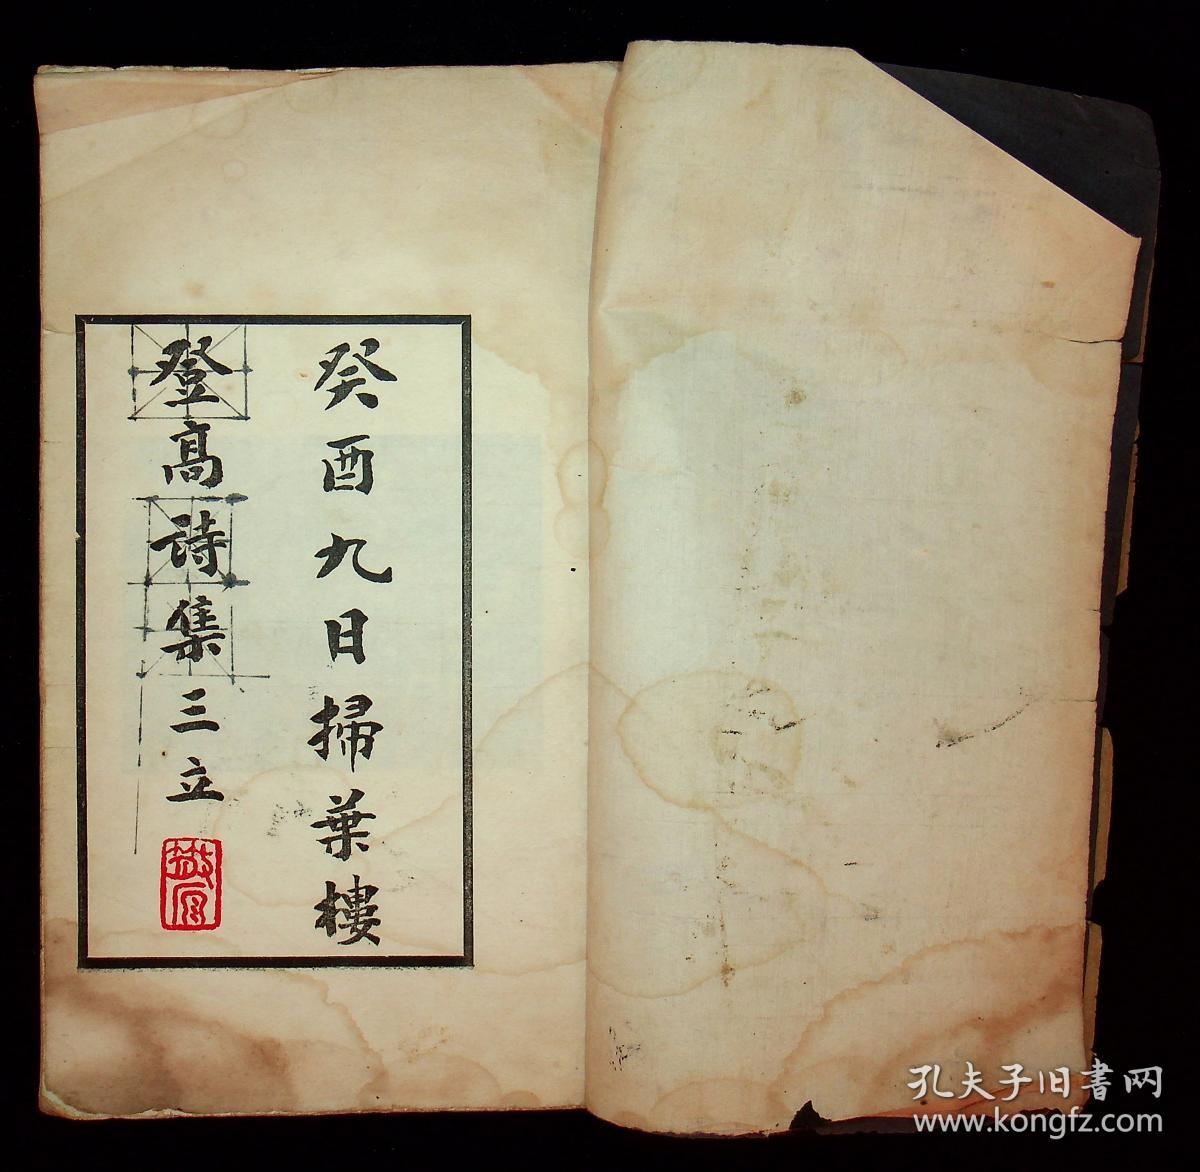 癸酉九日掃葉樓
登高詩集三立
散官
孔夫子旧書网
www.kongfz.com